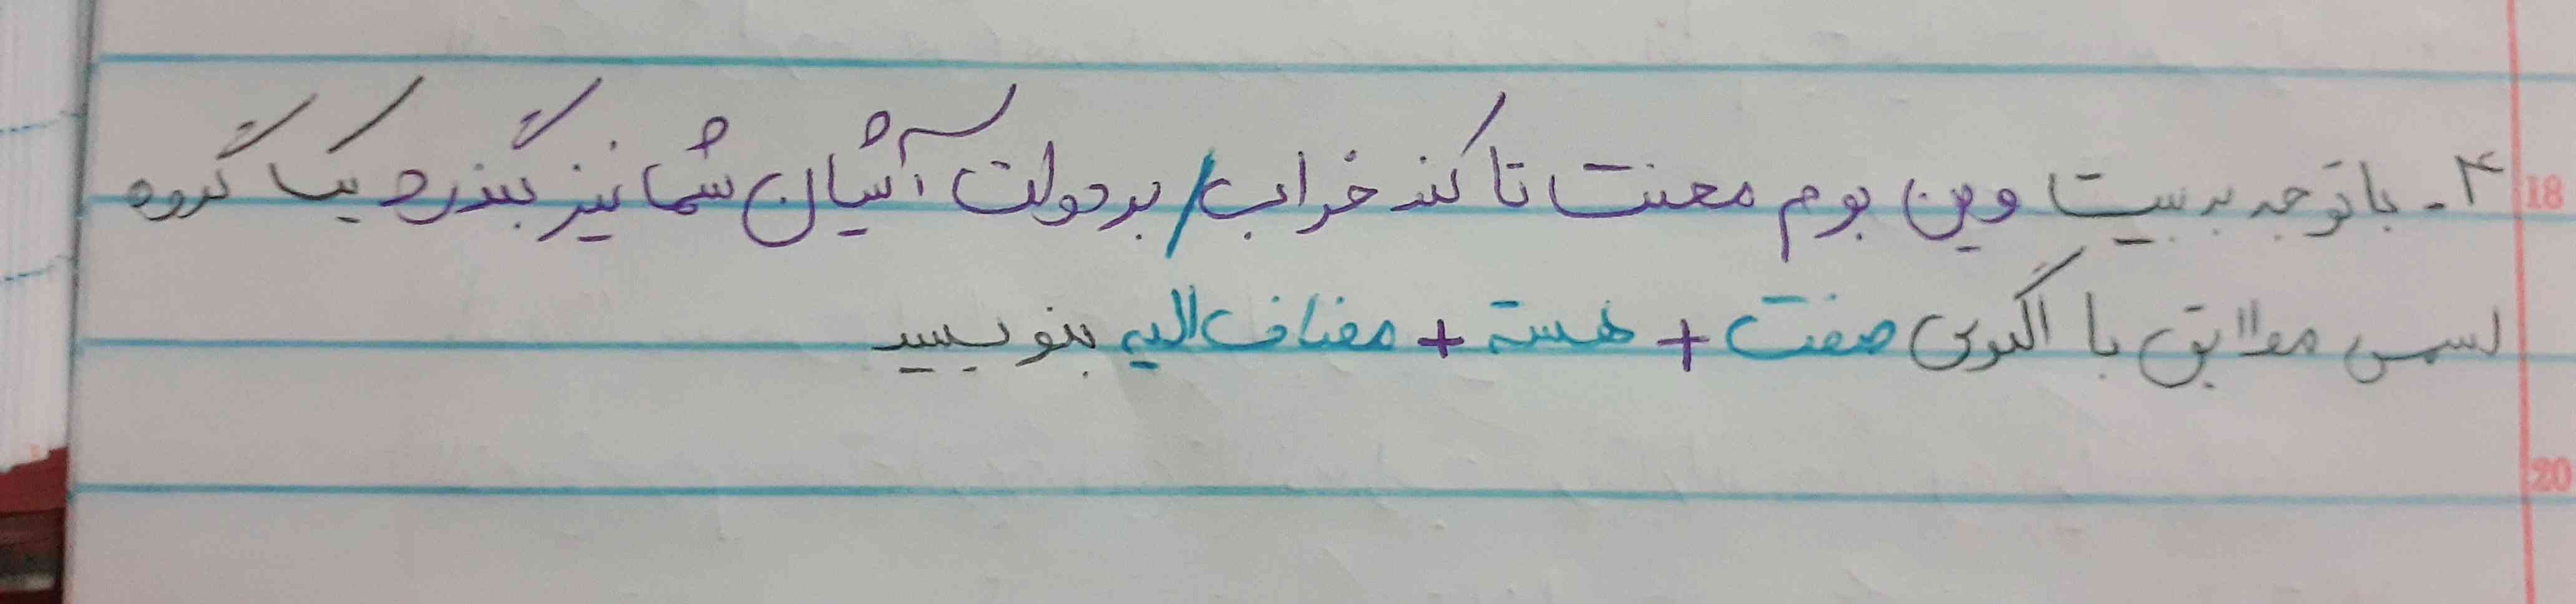 ۴- با توجه به بیت وین بوم محنت تا کند خراب / بر دولت آشیان شما نیز بگذرد یک گروه
اسمی مطابق با الگوی صفت + هسته + مضاف الیه بنویسید
18
20